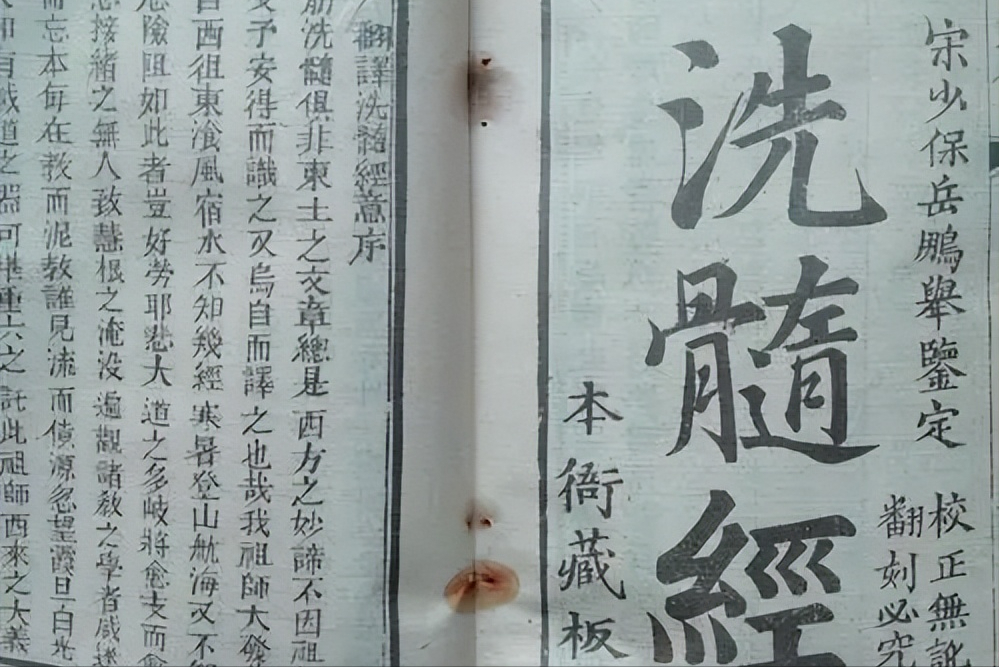 宋少保岳鵬舉鑒定
校正無訛
翻刻必究
洗髓經
本衙藏板
翻譯洗髓經意序
筋洗髓俱非東土之文章總是西方之妙諦不因祖
予安得而識之又烏自而譯之也哉我祖師大發
自西徂東飡風宿水不知幾經寒暑登山航海又不
危險阻如此者豈好勞耶恐大道之多岐將愈支而愈
急接緒之無人致慧根之淹没遍觀諸教之學者咸迷
而忘本每在教而泥教誰見流而僨源忽望霞旦一白光
知有載道之器可堪重大之託此祖師西來之大義